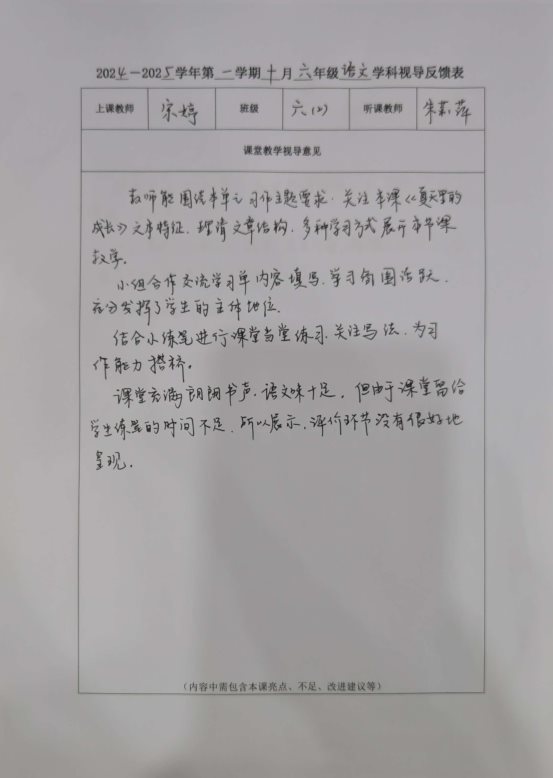 2024-2025学年第一学期十月六年级语文学科视导反馈表
上课教师 宋婷 班级 六(2) 听课教师 朱莉萍
课堂教学视导意见
教师能围绕本单元习作主题要求,关注本课《夏天里的
成长》文本特征,理清文章结构,多种学习方式展开本节课
教学。
小组合作交流学习单内容填写,学习氛围活跃,
充分发挥了学生的主体地位。
结合小练笔进行课堂当堂练习,关注写法,为习
作能力搭桥。
课堂充满朗朗书声,语文味十足,但由于课堂留给
学生练笔的时间不足,所以展示、评价环节没有很好地
呈现。
(内容中需包含本课亮点、不足、改进建议等)